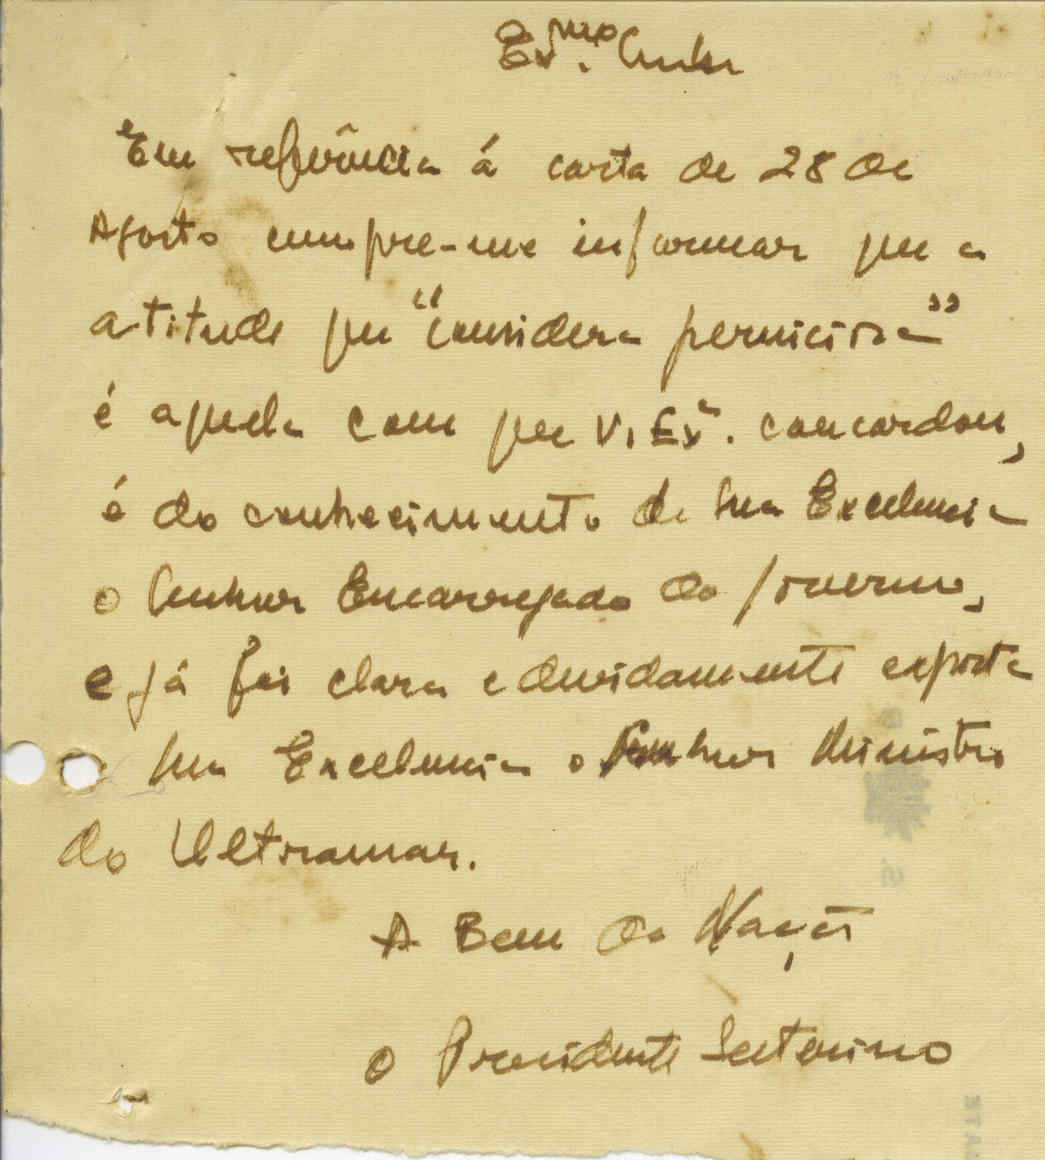 Exmo. Senhor
Em referência á carta de 28 de
Agosto cumpre-me informar que a
atitude que "considera perniciosa"
é aquela com que V. Exª. concordou,
é do conhecimento de Sua Excelencia
o Senhor Encarregado do Governo,
e já foi clara e devidamente exposta
Sua Excelencia o Senhor Ministro
do Ultramar.
A Bem da Nação
O Presidente Interino